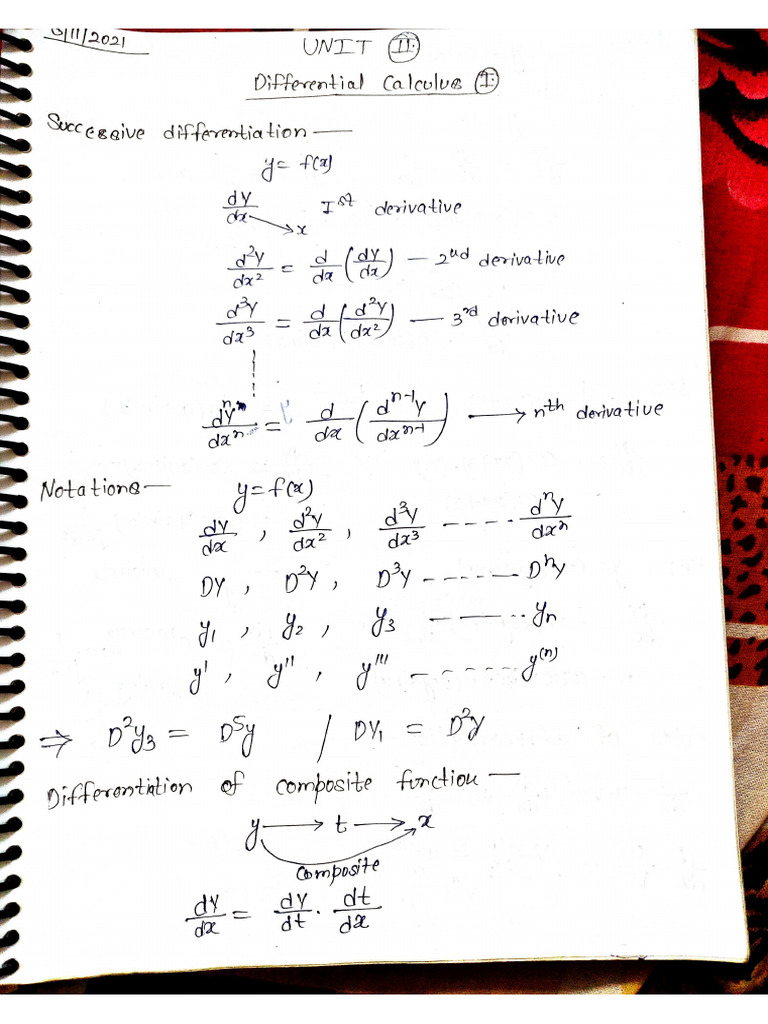 /11/2021
UNIT II
Differential Calculus I
Successive differentiation —
y = f(x)
dy/dx → x Ist derivative
d²y/dx² = d/dx (dy/dx) — 2nd derivative
d³y/dx³ = d/dx (d²y/dx²) — 3rd derivative
dⁿy/dxⁿ = d/dx (dⁿ⁻¹y/dxⁿ⁻¹) ⟶ nth derivative
Notations — y = f(x)
dy/dx , d²y/dx² , d³y/dx³ ----- dⁿy/dxⁿ
Dy , D²y , D³y ------ Dⁿy
y₁ , y₂ , y₃ ------ yₙ
y' , y'' , y''' ------ y⁽ⁿ⁾
⇒ D²y₃ = D⁵y / Dy₁ = D²y
Differentiation of composite function —
y ⟶ t ⟶ x
composite
dy/dx = dy/dt · dt/dx